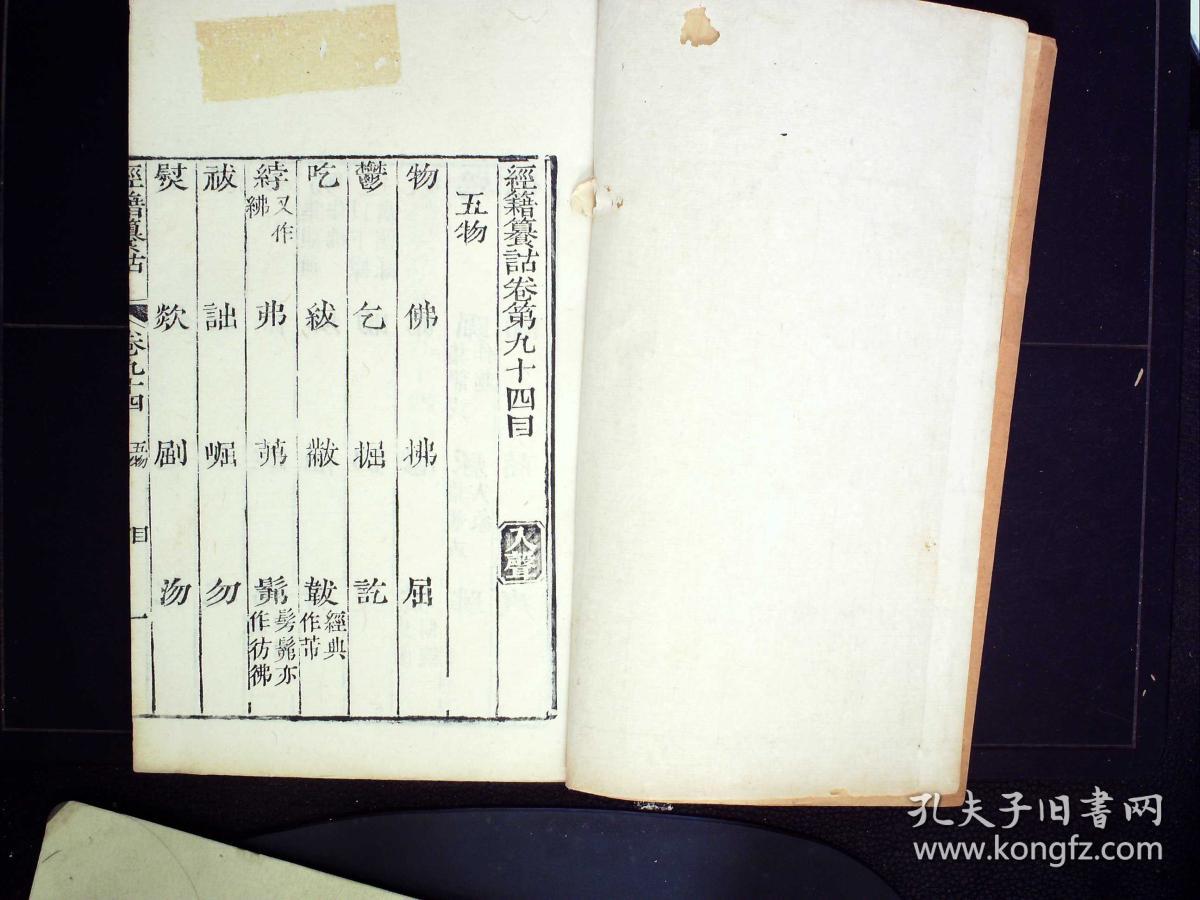 經籍籑詁卷第九十四目 入聲
五物
物 佛 拂 屈
鬱 乞 掘 訖
吃 紱 黻 韍 經典作芾
綍 又作紼 弗 茀 髴 髣髴亦作彷彿
祓 詘 崛 勿
熨 欻 㓖 沕
經籍籑詁 卷九十四 五物 目 一
孔夫子旧书网
www.kongfz.com